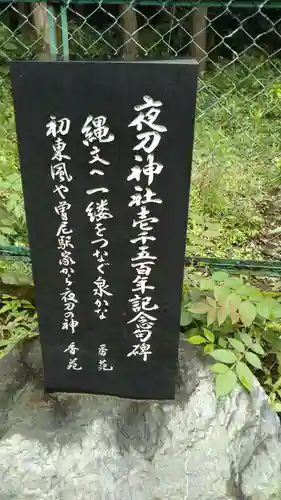 夜刀神社壱千五百年記念句碑
縄文へ一縷をつなぐ泉かな
香苑
初東風や曽尼駅家から夜刀の神
香苑